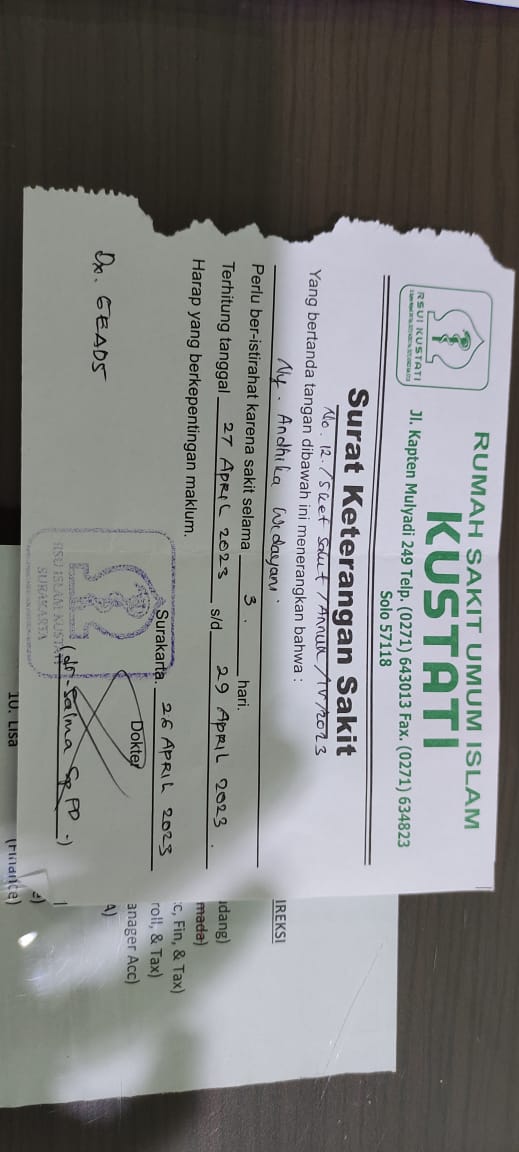 RSUI KUSTATI
RUMAH SAKIT UMUM ISLAM
KUSTATI
Jl. Kapten Mulyadi 249 Telp. (0271) 643013 Fax. (0271) 634823
Solo 57118
Surat Keterangan Sakit
No. 12 / Sket Sakit / / IV/2023
Yang bertanda tangan dibawah ini menerangkan bahwa :
Ny. Andhika Widayani.
Perlu ber-istirahat karena sakit selama 3. hari.
Terhitung tanggal 27 APRIL 2023 s/d 29 APRIL 2023.
Harap yang berkepentingan maklum.
Surakarta, 26 APRIL 2023
Dokter
Dx. GEADS
RSU ISLAM KUSTATI
SURAKARTA
(dr Salma Sp PD.)
IREKSI
dang)
mada)
c, Fin, & Tax)
roll, & Tax)
anager Acc)
A)
10. Lisa (Finance)